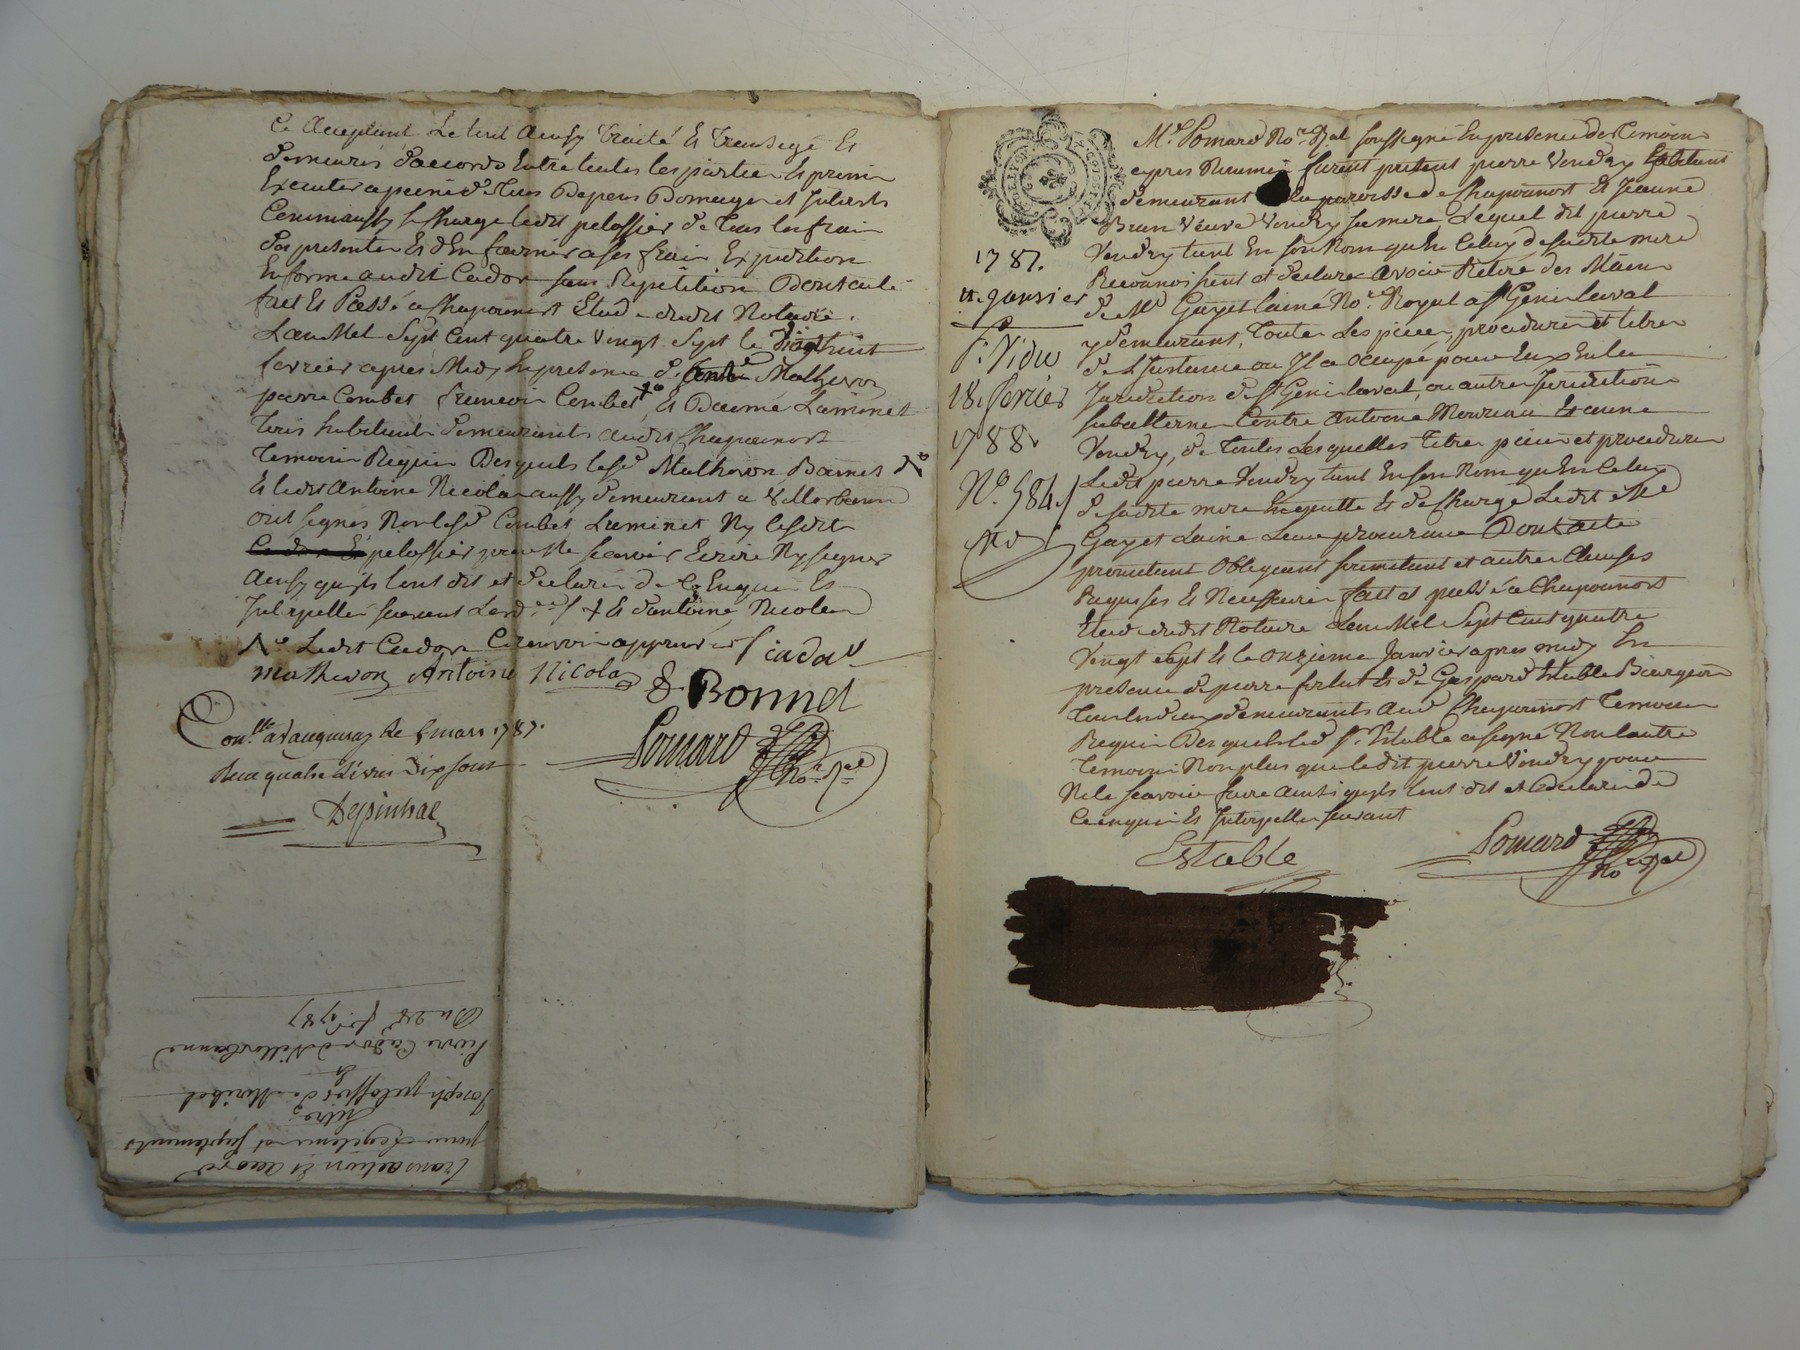 Ce acceptant Le tout ainsy traité Et transigé Et
demeurés d'accords Entre toutes les parties Et promis
Executer a peine de tous Depens Domages et Interests
Comm'aussy se Charge ledit pelossier de tous les frais
des presentes Et d'En fournir a ses frais Expedition
En forme audit Cador sans Repetition Dont acte
fait Et Passé a Chaponost Etude dudit Notaire
L'an Mil Sept Cent quatre Vingt Sept le dix huit
fevrier apres Midy En presence de Mathevon
pierre Combet Combet, Et Daimé Luminet
tous habitants demeurants audit Chaponost
Temoins Requis Desquels le Sr Mathevon Bonnet
Et ledit Antoine Nicolas aussy demeurant a Villeurbanne
ont signés Non lesd Combet Luminet Ny lesdits
pelossier pour Ne scavoir Ecrire Ny signer
Ainsy qu'ils l'ont dit et declarés de Ce Enquis Et
Interpellés suivant L'ord et d'antoine Nicolas
Ledit Cador Ce renvoi approuvé cadot
mathevon Antoine Nicolas Bonnet
Conllé a Vaugneray le 5 mars 1787.
Reçu quatre Livres Dix sous
Despinhac
Pomard No. Ral
transaction Et accord
pour Legitime et suplements
Entre
Joseph pelossier de Miribel
Et
Pierre Cador de Villeurbanne
Du 28 1787
1787.
11. Janvier
F. Vidu
18. fevrier
1788.
No. 584
Me. Pomard Nore. Ral soussigné En presence des temoins
cy apres Nommés furent presents pierre Vondry
demeurant la paroisse de Chaponost Et Jeanne
Brun Veuve Vondry sa mere Lequel dit pierre
Vondry tant En son Nom qu'En Celuy de sadite mere
Reconnoissent et declare avoir Retiré des Mains
de Me. Gayet L'aîné Nore. Royal a St Genis Laval
y demeurant, toutes Les pieces, procedures et titres
de L'Instance ou Il a occupé pour Eux En la
Juridiction de St Genis laval, ou autres Juridictions
subalternes Contre Antoine Moureau Et anne
Vondry, de toutes Lesquelles titres pieces et procedures
Ledit pierre Vondry tant En son Nom qu'En Celuy
de sadite mere Enquitte Et decharge Ledit Me
Gayet L'aîné Leur procureur Dont acte
promettant obligeant soumettant et autres Clauses
Requises Et Necessaires fait et passé a Chaponost
Etude dudit Notaire L'an Mil Sept Cent quatre
Vingt Sept Et le onzieme Janvier apres midy En
presence de pierre Et de Gaspard Estable Bourgeois
tous les deux demeurants aud Chaponost Temoins
Requis Desquels led Sr. Estable a signé Non l'autre
temoin Non plus que ledit pierre Vondry pour
Ne le scavoir faire Ainsi qu'ils l'ont dit et declaré de
Ce enquis Et Interpellés suivant
Estable Pomard No. Ral